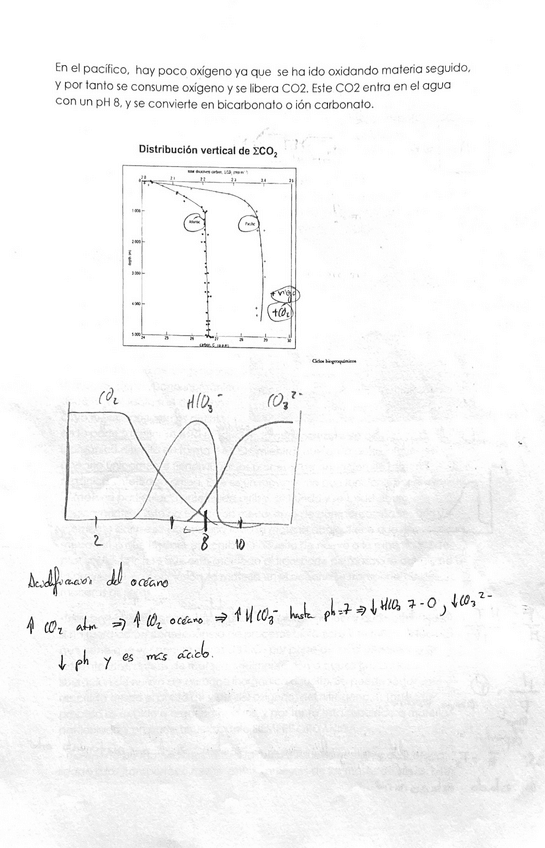 En el pacífico, hay poco oxígeno ya que se ha ido oxidando materia seguido,
y por tanto se consume oxígeno y se libera CO2. Este CO2 entra en el agua
con un pH 8, y se convierte en bicarbonato o ión carbonato.
Distribución vertical de ΣCO₂
2.0 2.1 2.2 2.3 2.4 2.5
0
1 000
Atlantic Pacific
2 000
depth (m)
3 000
4 000
+CO₂
5 000
24 25 26 27 28 29 30
Ciclos biogeoquímicos
CO₂ HCO₃⁻ CO₃²⁻
2 8 10
Acidificación del océano
↑ CO₂ atm ⇒ ↑ CO₂ océano ⇒ ↑ HCO₃⁻ hasta ph=7 ⇒ ↓ HCO₃ 7-0, ↓ CO₃²⁻
↓ ph y es más ácido.